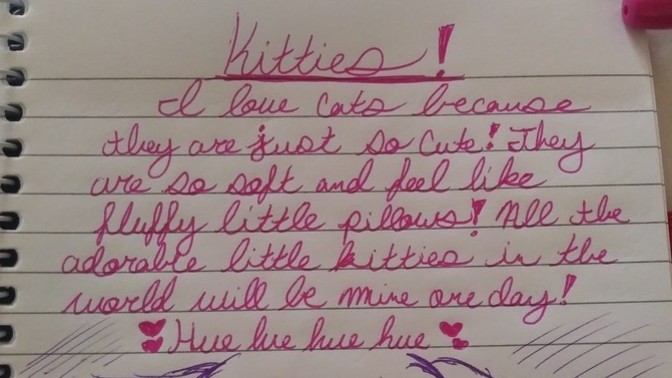 Kitties!
I love cats because
they are just so cute! They
are so soft and feel like
fluffy little pillows! All the
adorable little kitties in the
world will be mine one day!
Hue hue hue hue